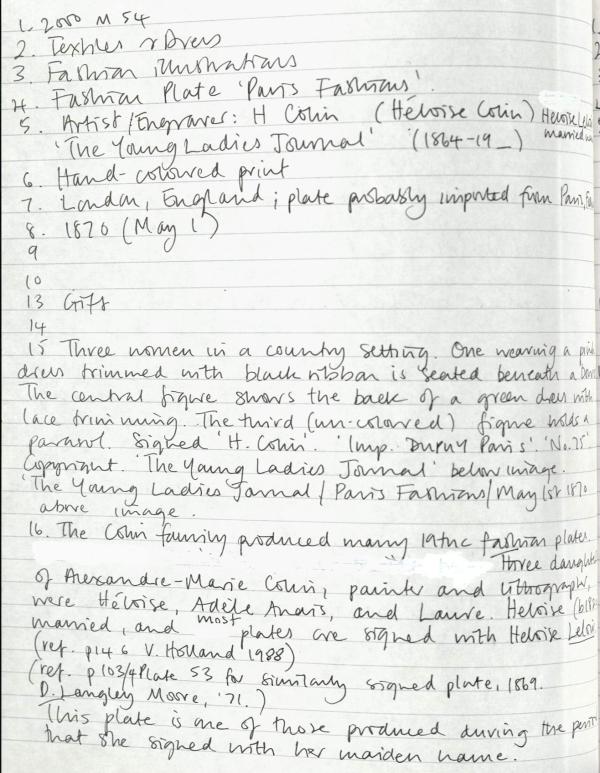 1. 2000 M 54
2. Textiles & Dress
3. Fashion illustrations
4. Fashion Plate 'Paris Fashions'.
5. Artist/Engraver: H Colin (Héloise Colin) Heloise
married
'The Young Ladies Journal' (1864-19_)
6. Hand-coloured print
7. London, England; plate probably imported from Paris,
8. 1870 (May 1)
9
10
13 Gift
14
15 Three women in a country setting. One wearing a
dress trimmed with black ribbon is seated beneath a
The central figure shows the back of a green dress with
lace trimming. The third (un-coloured) figure holds a
parasol. Signed 'H. Colin'. 'Imp. Dupuy Paris'. 'No.25'
Copyright. 'The Young Ladies Journal' below image.
'The Young Ladies Jornal / Paris Fashions / May 1st 1870
above image.
16. The Colin family produced many 19thc fashion plates.
Three
of Alexandre-Marie Colin, painter and lithograph,
were Héloise, Adèle Anais, and Laure. Heloise
married, and most plates are signed with Heloise
(ref. p146 V. Holland 1988)
(ref. p103/4 Plate 53 for similarly signed plate, 1869.
D. Langley Moore, '71.)
This plate is one of those produced during the
that she signed with her maiden name.